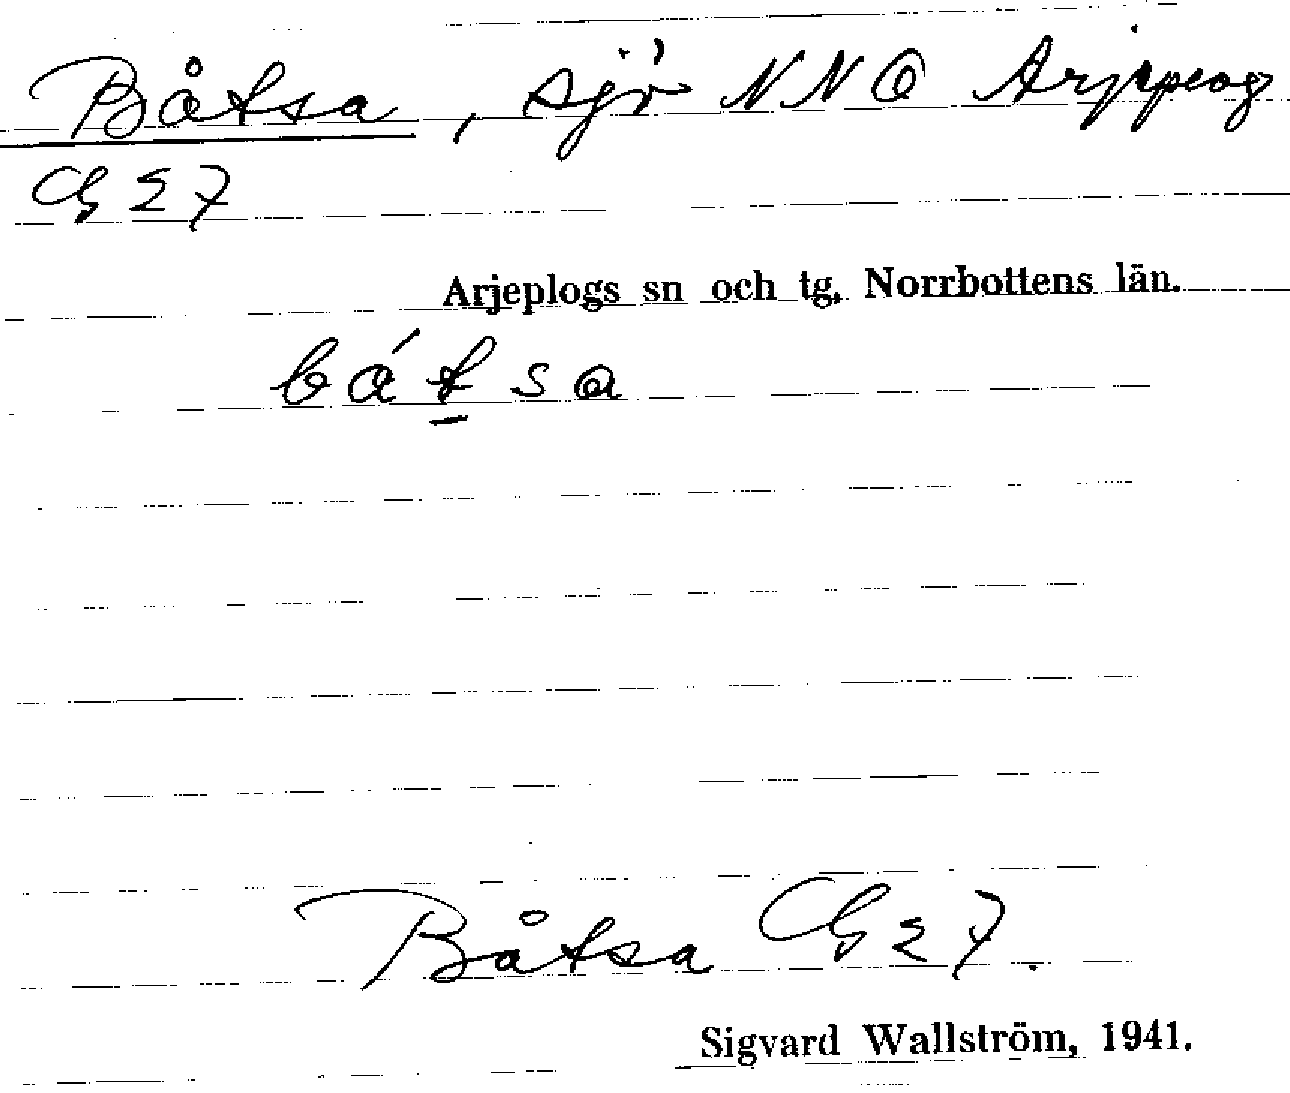 Båtsa, sjö NNO Arjeplog
GΣ7
Arjeplogs sn och tg. Norrbottens län.
bát̲sa
Båtsa GΣ7.
Sigvard Wallström, 1941.